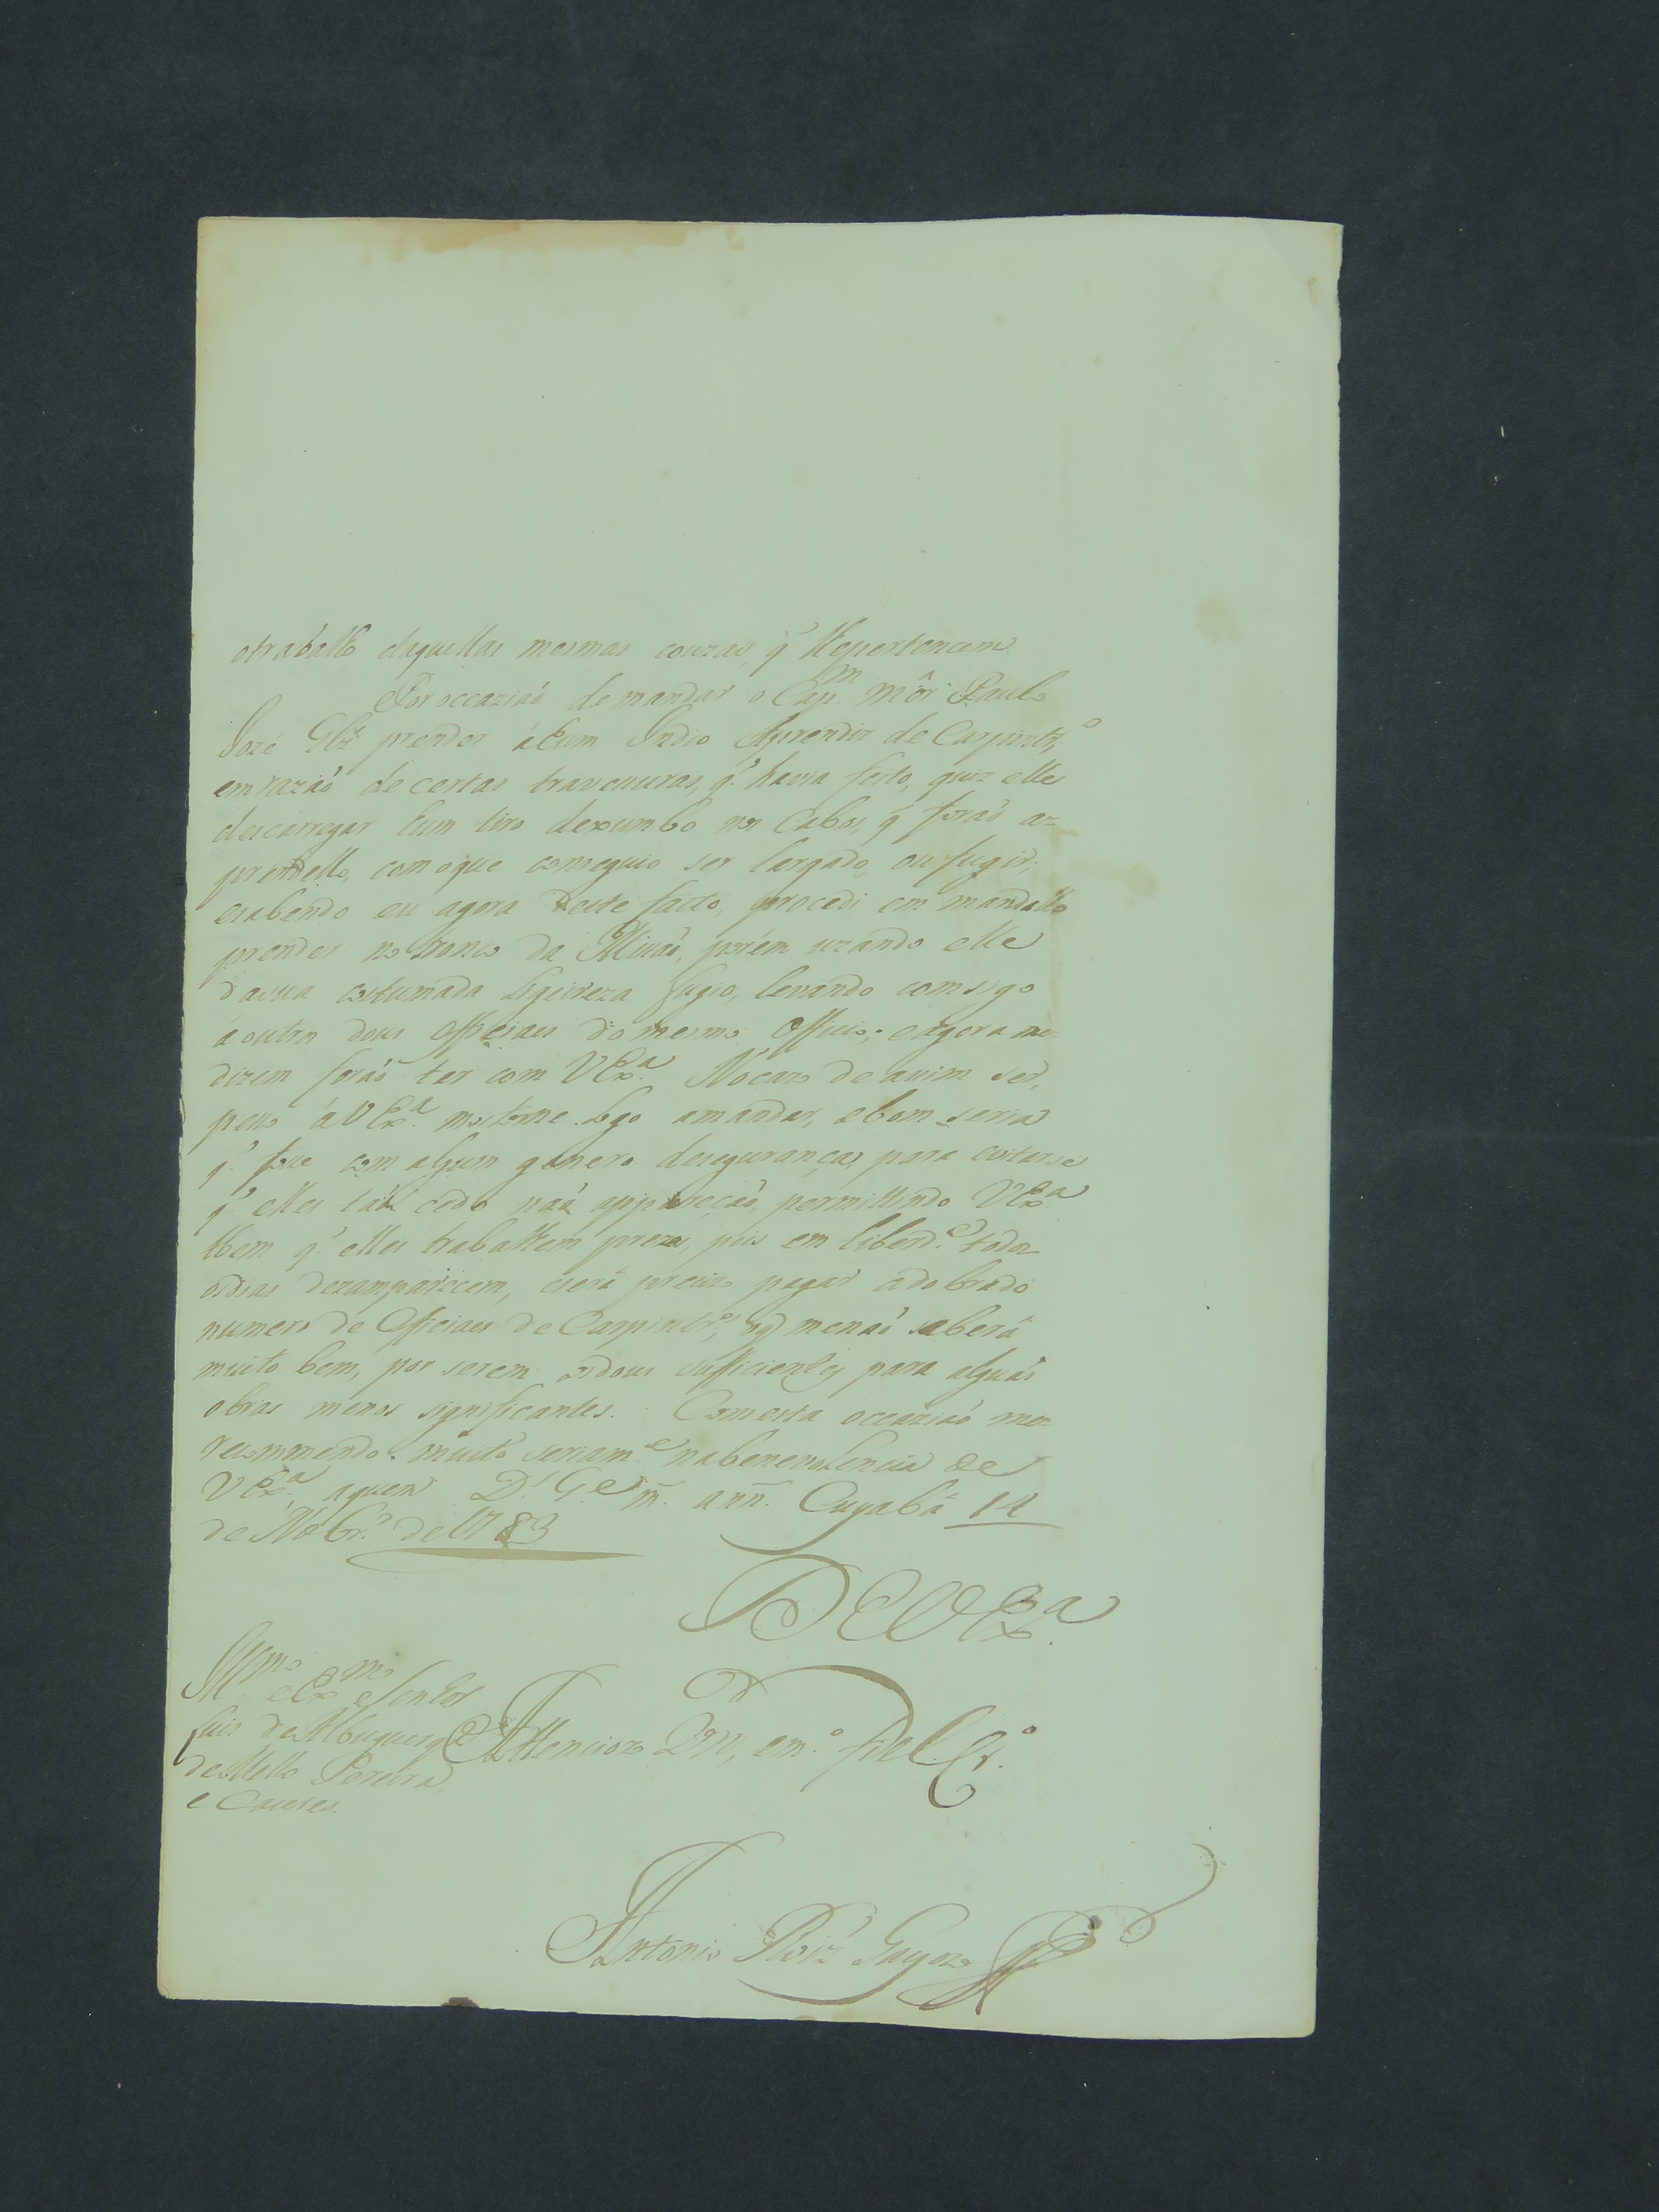 otrabalho daquellas mesmas couzas, q' lhepertencem
Por occaziaõ de mandar o Cap.m môr Paulo
Jozé Glz' prender áhum Indio Aprendiz de Carpintr.o
em razaõ de certas travessuras, q' havia feito, quiz elle
descarregar hum tiro dexumbo nos Cabos, q' foraõ a=
prendello, com oque conseguio ser largado, ou fugir;
esabendo eu agora deste facto, procedi em mandallo
prender no tronco da Missaõ, porém uzando elle
dasua costumada ligeireza fugio, levando comsigo
a outros dous Officiaes do mesmo Officio; eagora me
dizem foraõ ter com VEx.a Nócazo de assim ser,
peço áVEx.a mostorne logo amandar, ebom seria
q' fosse com algum genero desegurança, para
q' elles taõ cedo naõ permittindo VEx.a
tbem q' elles trabalhem prezos, pois em liberd.e todos
osdias dezamparecem, eserá precizo pagar adobrado
numero de Officiaes de Carpintr.o, oq' menaõ saberá
muito bem, por serem osdous sufficientes para alguãs
obras menos significantes. Comesta occaziaõ me=
recommendo muito seriam.e nabenevolencia de
VEx.a aquem D.s G.e m. ann. Cuyabá 14
de Nobr.o de 1783
DeVEx.a
Illmo eExmo Senhor
Luis de Albuquerq.e
deMello Pereira
e Caceres.
Attenciozo Ven, em.o fiel Cr.o
Antonio Roiz' Gayozo